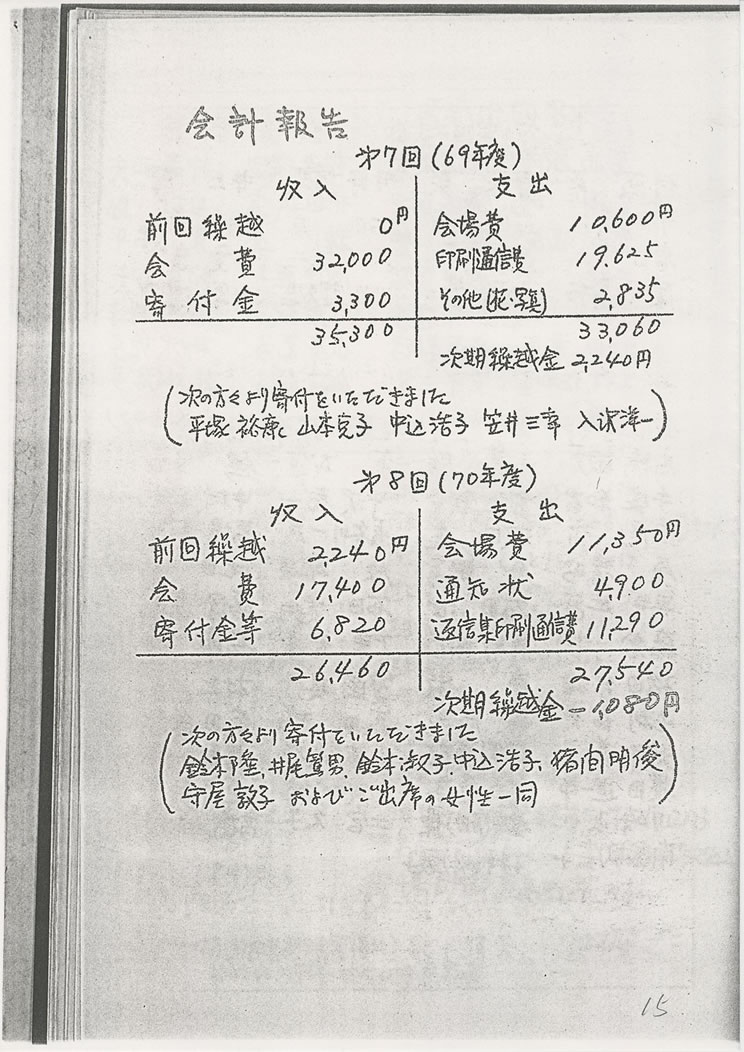 会計報告
第7回(69年度)
収入 支出
前回繰越 0円 会場費 10,600円
会費 32,000 印刷通信費 19,625
寄付金 3,300 その他(花・写真) 2,835
35,300 33,060
次期繰越金 2,240円
次の方々より寄付をいただきました
平塚裕康 山本克子 中込浩子 笠井三幸 入沢洋一
第8回(70年度)
収入 支出
前回繰越 2,240円 会場費 11,350円
会費 17,400 通知状 4,900
寄付金等 6,820 返信集印刷通信費 11,290
26,460 27,540
次期繰越金 -1,080円
次の方々より寄付をいただきました
鈴木隆、井尾篤男、鈴木淑子、中込浩子、猪間明俊
守屋敦子 およびご出席の女性一同
15